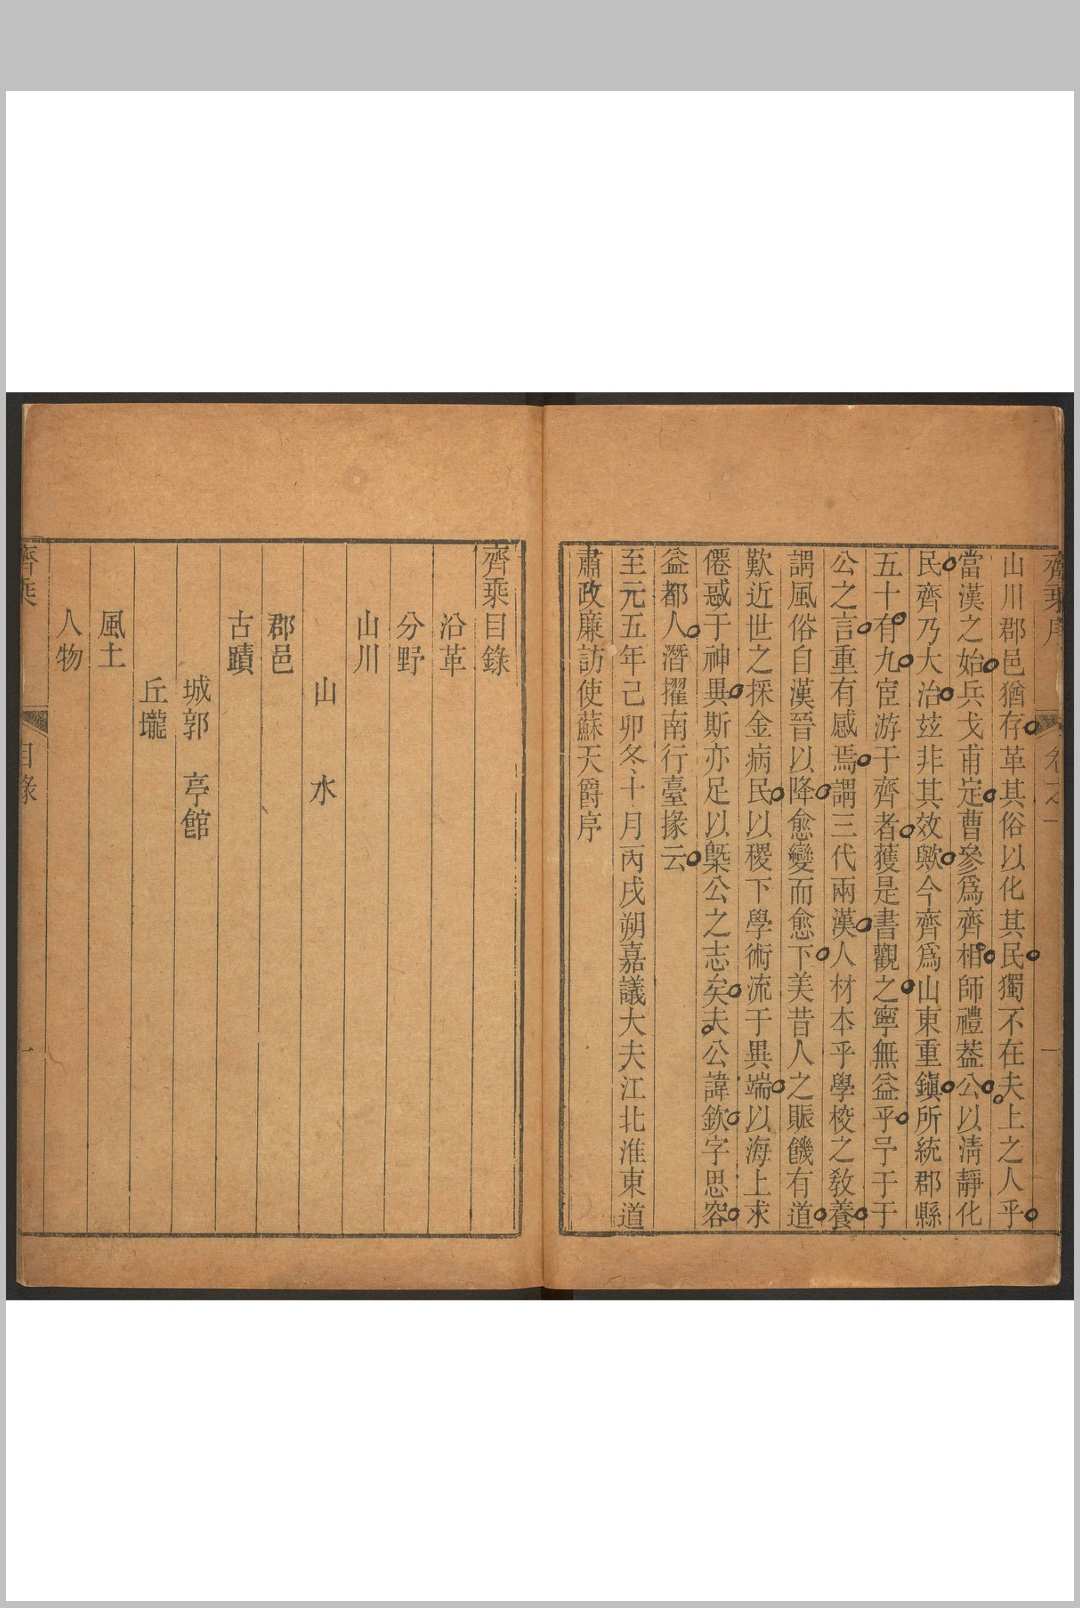 山川郡邑猶存革其俗以化其民獨不在夫上之人乎
當漢之始兵戈甫定曹參爲齊相師禮葢公以淸靜化
民齊乃大治玆非其效歟今齊爲山東重鎭所統郡縣
五十有九宦游于齊者獲是書觀之寧無益乎予于于
公之言重有感焉謂三代兩漢人材本乎學校之敎養
謂風俗自漢晉以降愈變而愈下美昔人之賑饑有道
歎近世之採金病民以稷下學術流于異端以海上求
僊惑于神異斯亦足以槩公之志矣夫公諱欽字思容
益都人潛擢南行臺掾云
至元五年己卯冬十月丙戌朔嘉議大夫江北淮東道
肅政廉訪使蘇天爵序
齊乘目錄
沿革
分野
山川
山 水
郡邑
古蹟
城郭 亭館
丘壠
風土
人物
齊乘
目錄
一